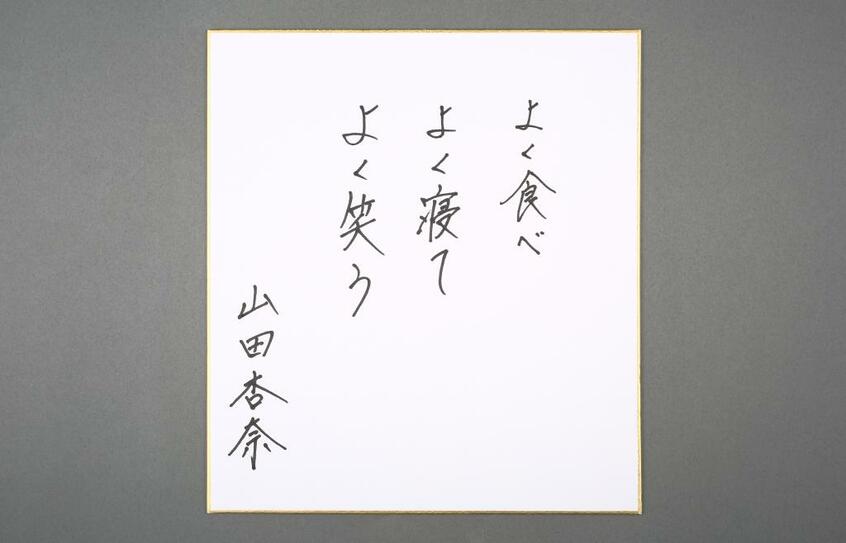 よく食べ
よく寝て
よく笑う
山田杏奈